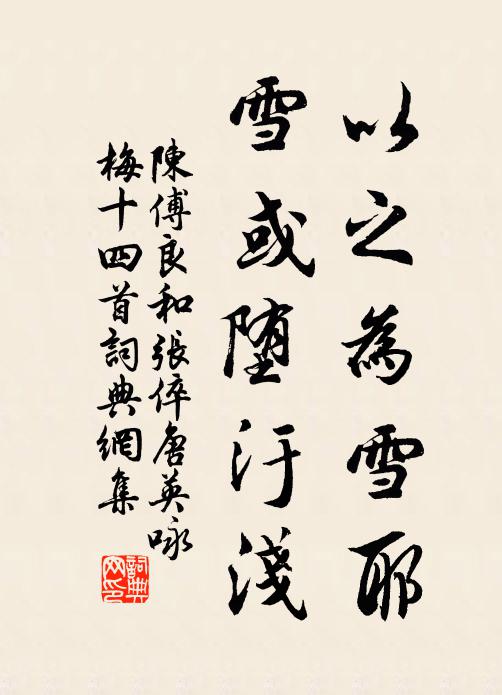 以之為雪耶
雪或墮汙淺
陳傅良和張倅唐英咏
梅十四首詞典網集
詞典
网印